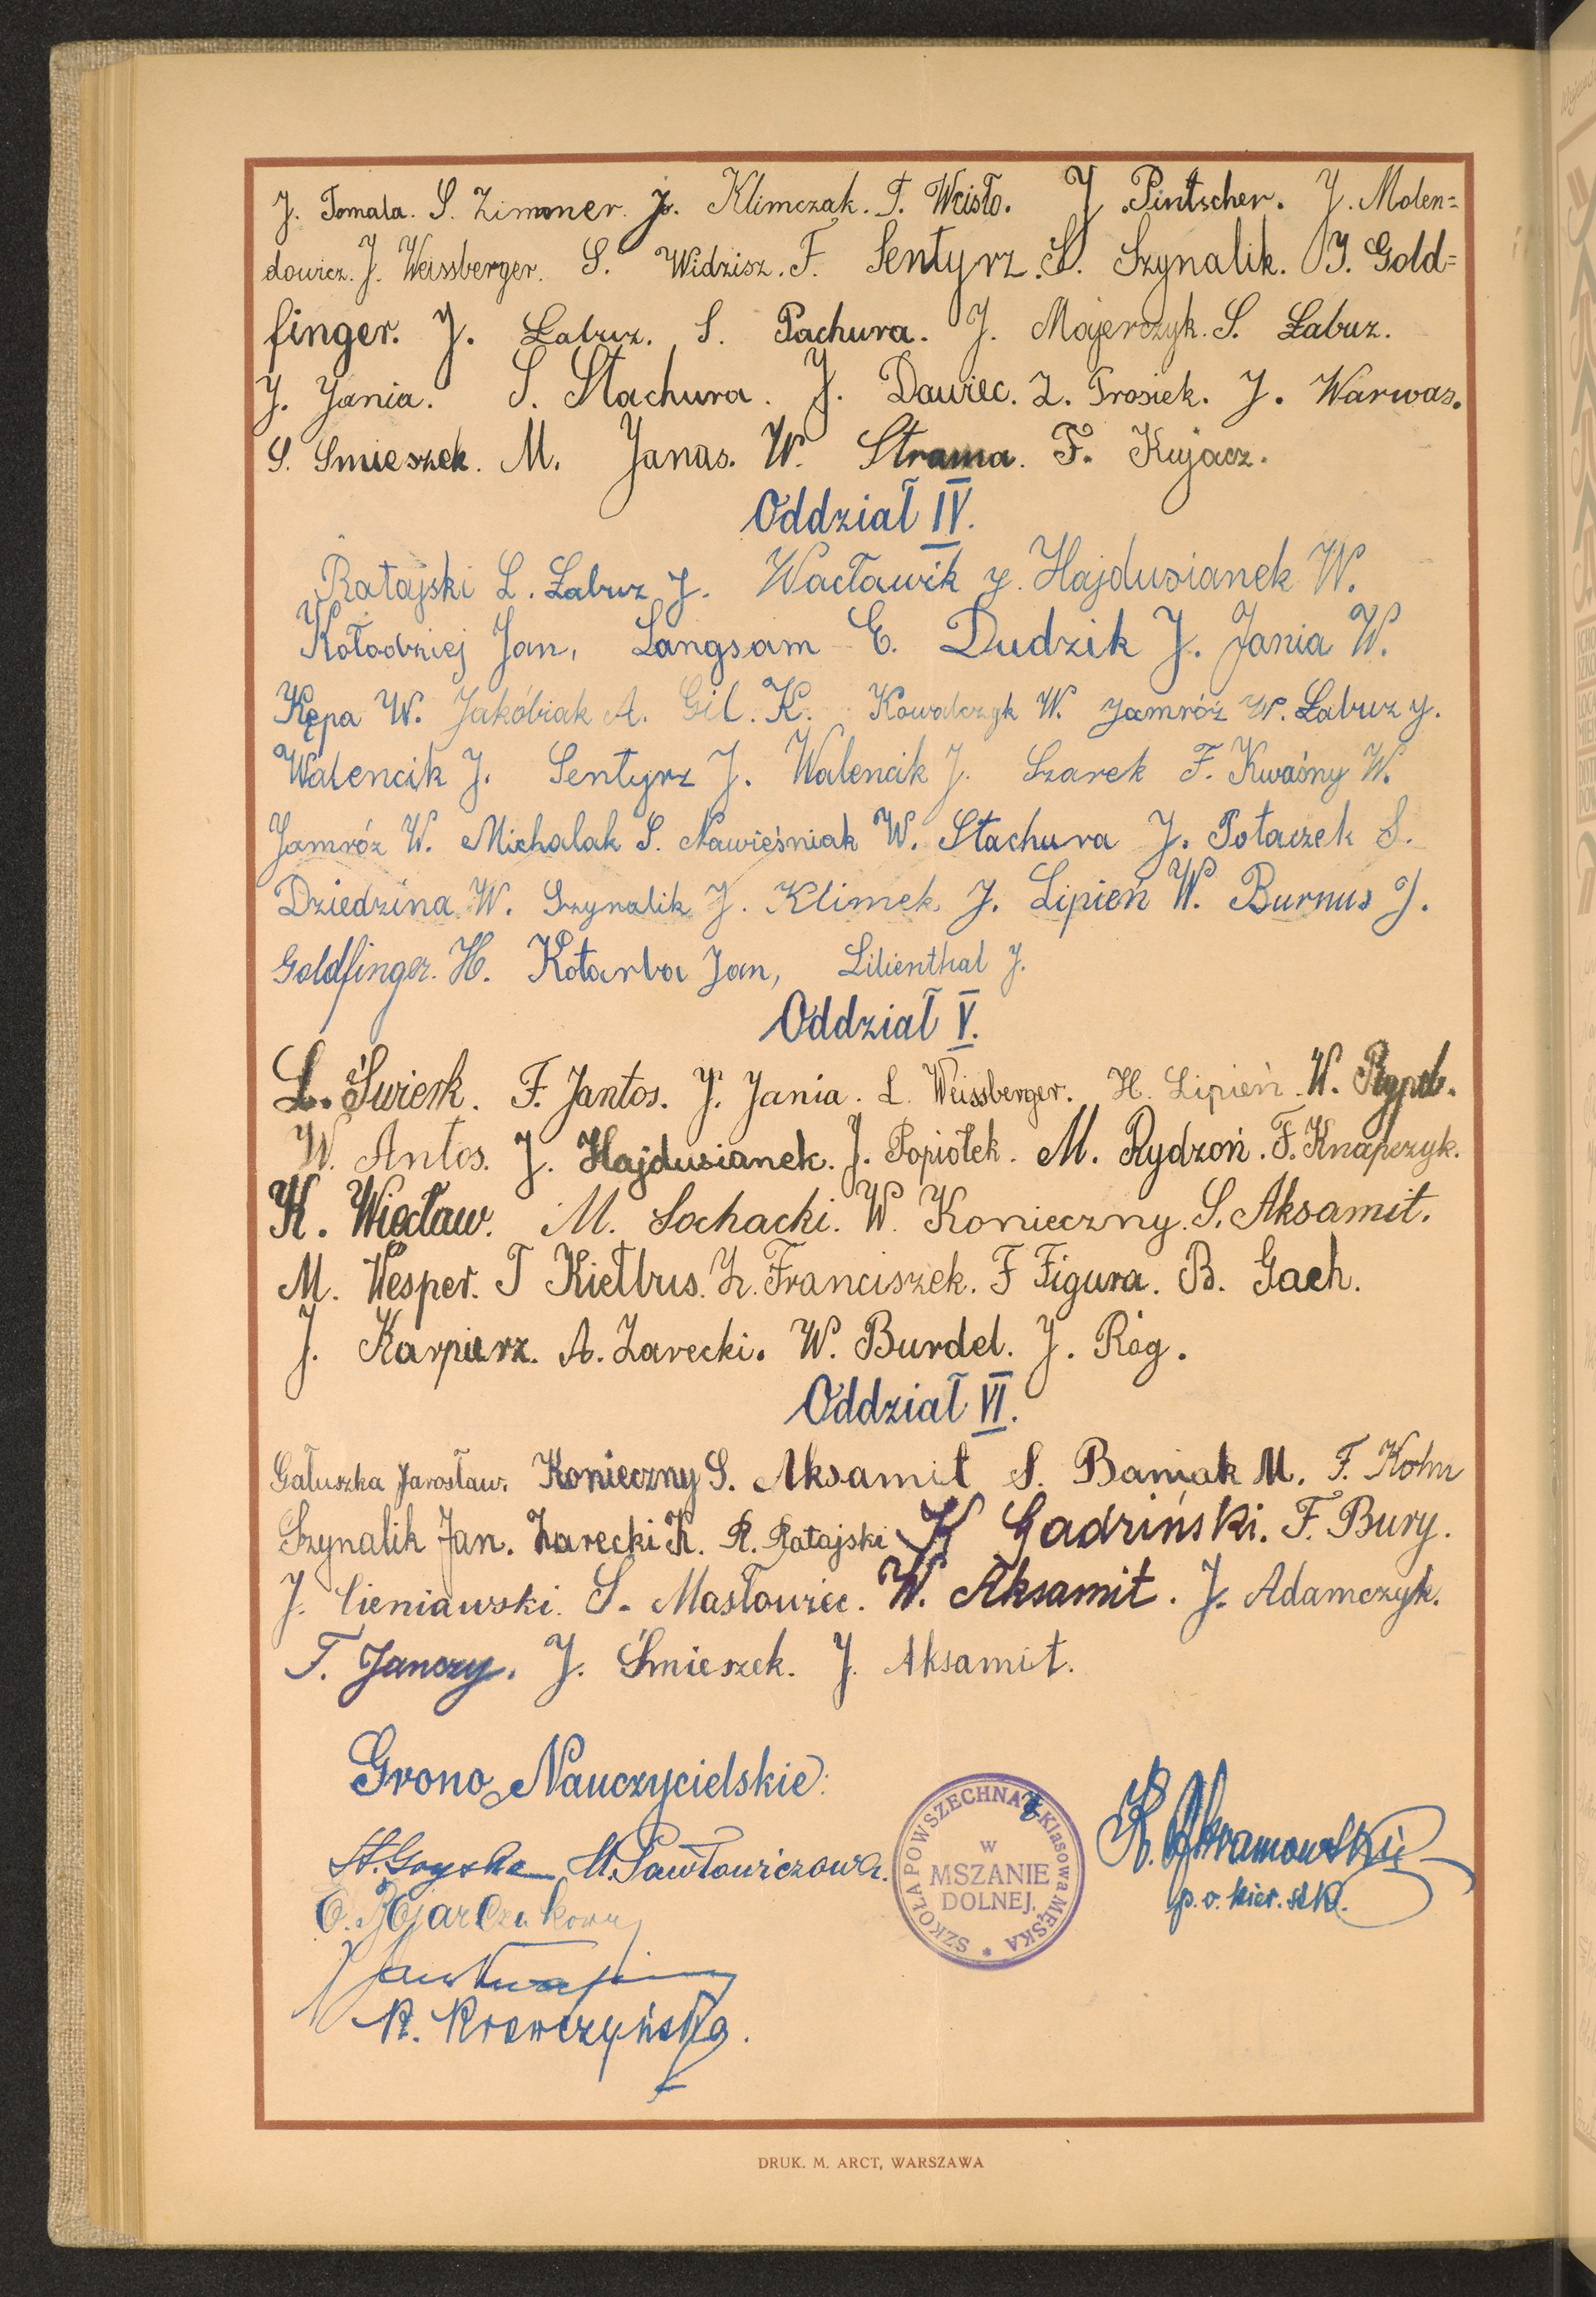 J. Tomala. S. Zimmer. J. Klimczak. T. Wcisło. J. Pintscher. J. Molen=
dowicz. J. Weissberger. S. Widzisz. F. Sentyrz. S. Szynalik. J. Gold=
finger. J. Łabuz. S. Pachura. J. Majerczyk. S. Łabuz.
J. Jania. S. Stachura. J. Dawiec. Z. Trosiek. J. Warwas.
S. Smieszek. M. Janas. W. Strama. F. Kujacz.
Oddział IV.
Ratajski L. Łabuz J. Wacławik J. Hajdusianek W.
Kołodziej Jan, Langsam E. Dudzik J. Jania W.
Kępa W. Jakóbiak A. Gil. K. Kowalczyk W. Jamróz W. Łabuz J.
Walencik J. Sentyrz J. Walencik J. Szarek F. Kwaśny W.
Jamróz W. Michalak S. Nawieśniak W. Stachura J. Potaczek S.
Dziedzina W. Szynalik J. Klimek J. Lipień W. Burnus J.
Goldfinger. H. Kotarba Jan, Lilienthal J.
Oddział V.
L. Świerk. F. Jantos. J. Jania. L. Weissberger. H. Lipień. W.
W. Antos. J. Hajdusianek. J. Popiołek. M. Rydzoń. F. Knapczyk.
K. Wiecław. M. Sochacki. W. Konieczny. S. Aksamit.
M. Wesper. T Kiełbus. Z. Franciszek. F Figura. B. Gach.
J. Karpierz. A. Zarecki. W. Burdel. J. Róg.
Oddział VI.
Gałuszka Jarosław. Konieczny S. Aksamit S. Baniak M. F. Kohn
Szynalik Jan. Zarecki K. R. Ratajski K Gadziński. F. Bury.
J. Cieniawski. S. Masłowiec. W. Aksamit. J. Adamczyk.
T. Janczy. J. Śmieszek. J. Aksamit.
Grono Nauczycielskie:
M. Pawłowiczowa.
K. Abramowski
p. o. kier. szk.
SZKOŁA POWSZECHNA 7 Klasowa MĘSKA
w
MSZANIE
DOLNEJ.
R. Krawczyńska.
DRUK. M. ARCT, WARSZAWA